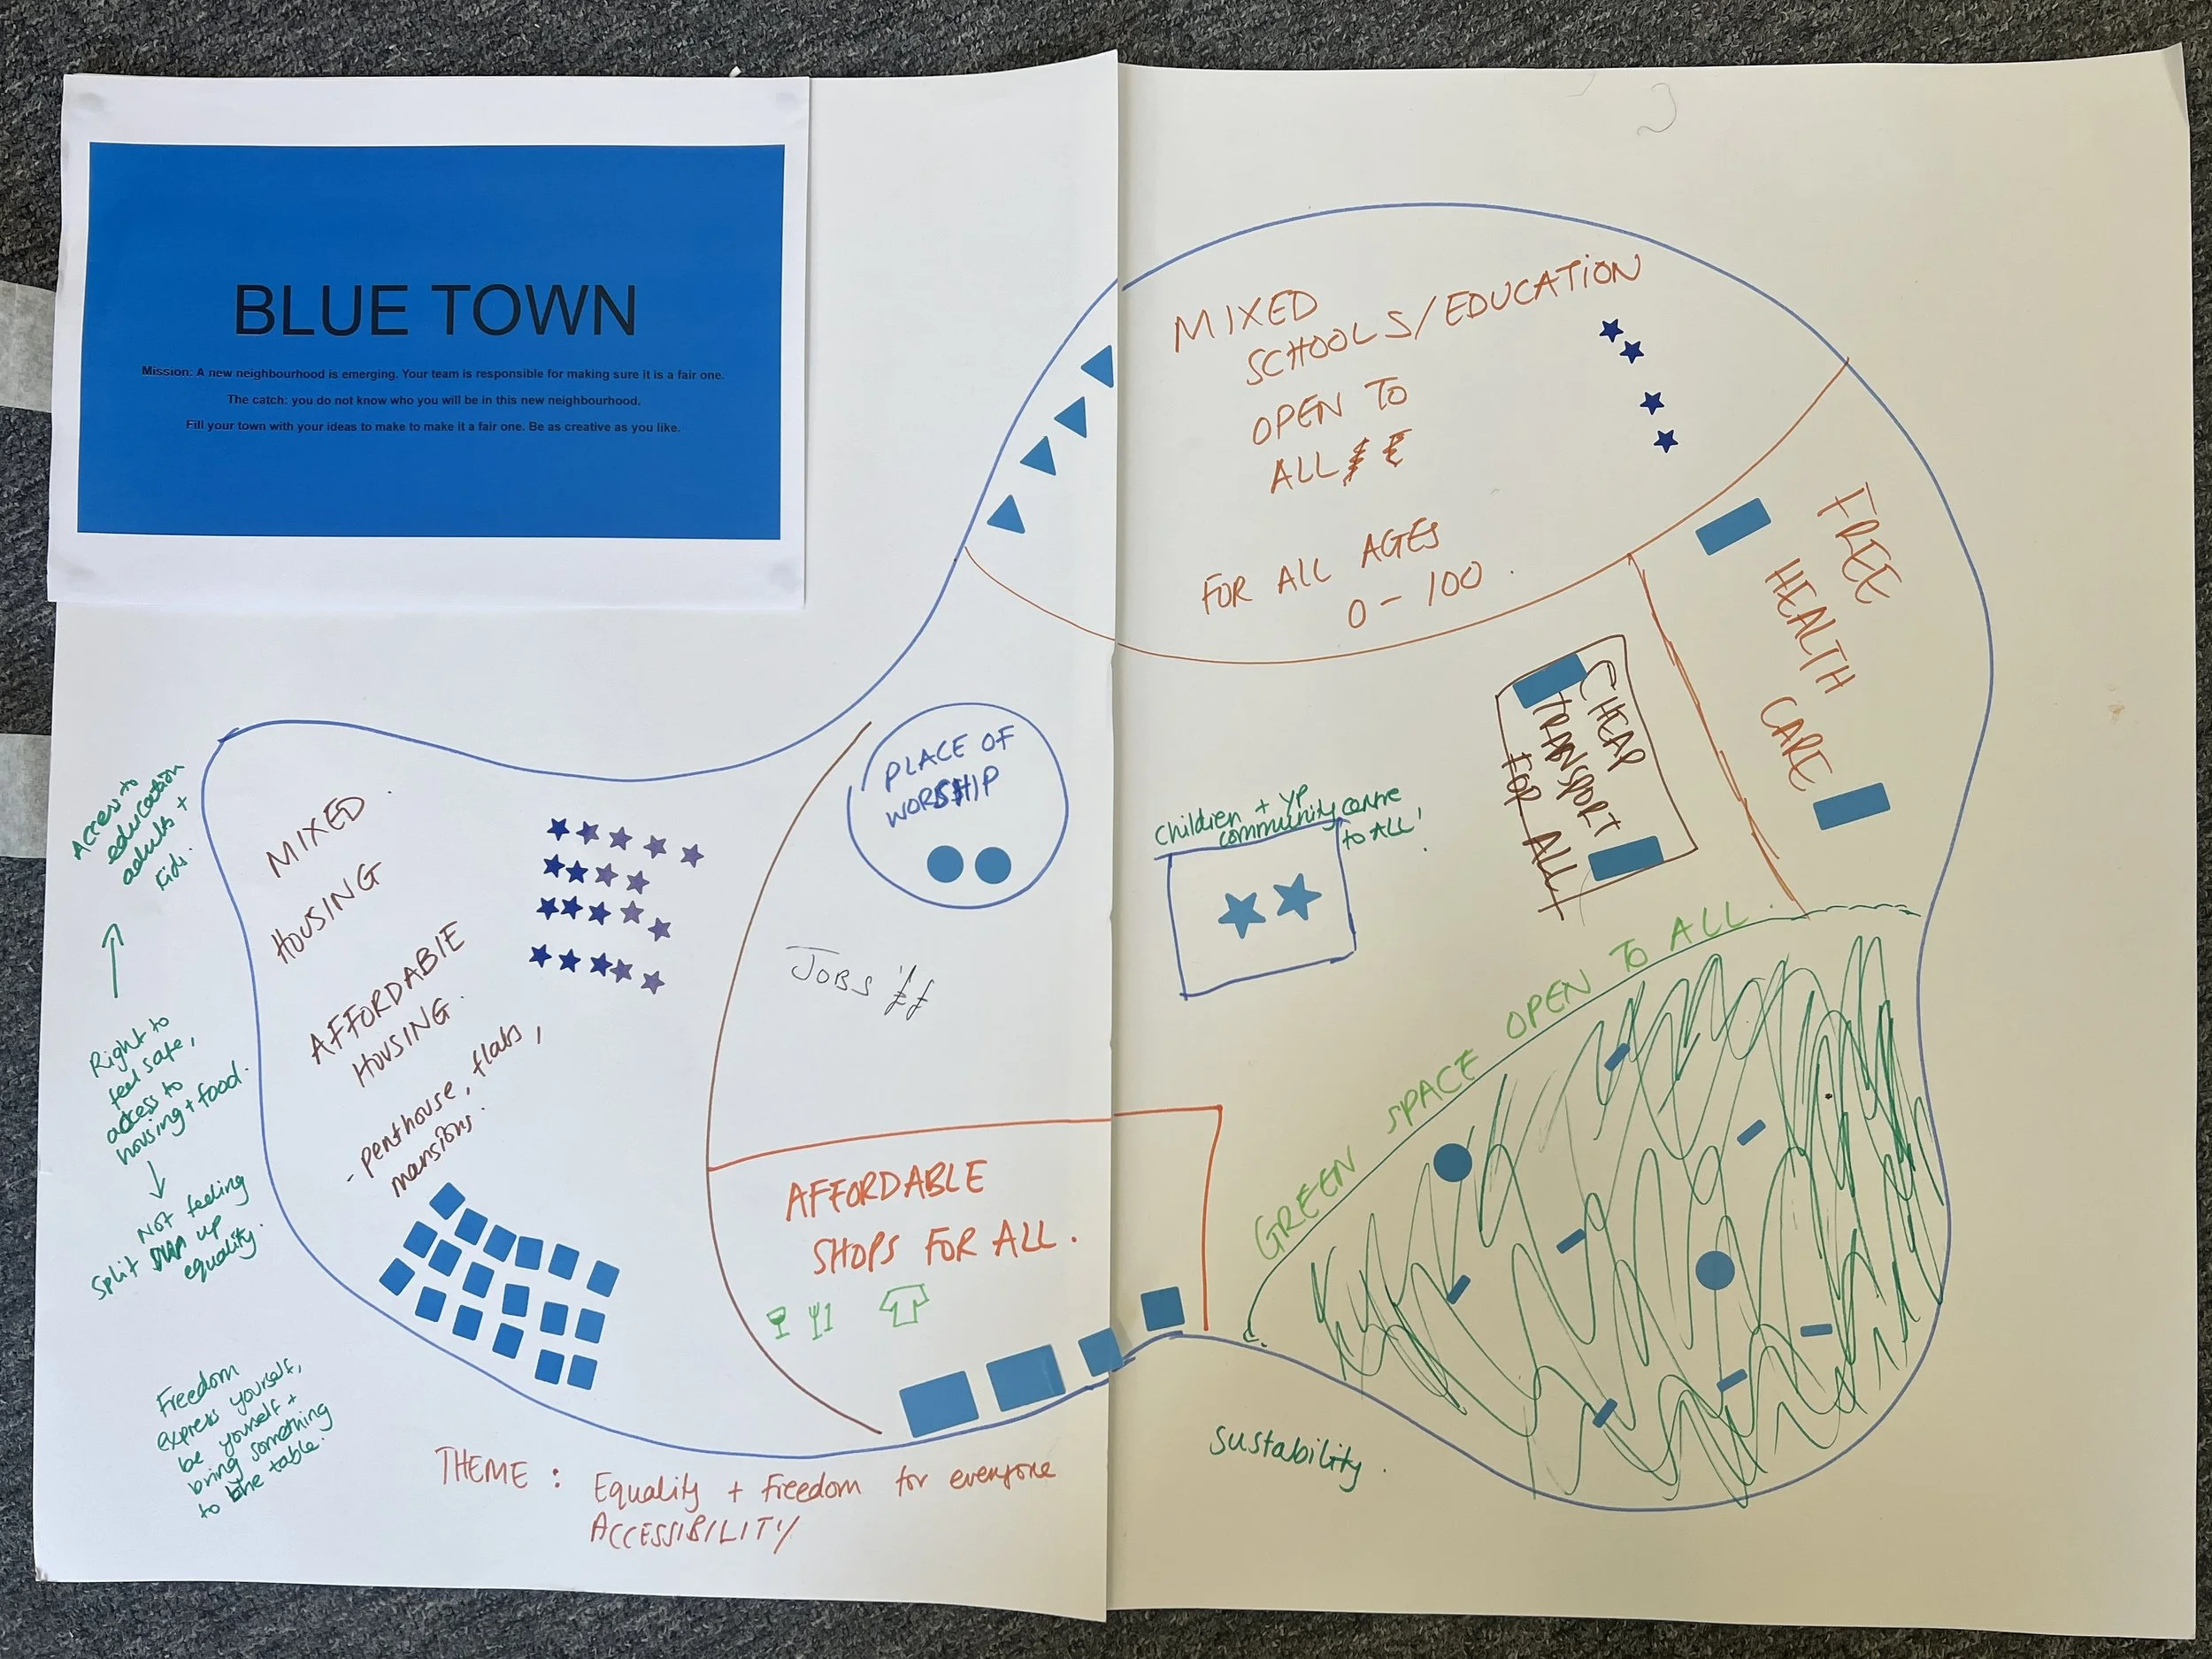 BLUE TOWN
Mission: A new neighbourhood is emerging. Your team is responsible for making sure it is a fair one.
The catch: you do not know who you will be in this new neighbourhood.
Fill your town with your ideas to make to make it a fair one. Be as creative as you like.
MIXED
SCHOOLS/EDUCATION
OPEN TO
ALL
FOR ALL AGES
0-100.
FREE
HEALTH
CARE
CHEAP
TRANSPORT
FOR ALL
PLACE OF
WORSHIP
Children + YP
community centre
to ALL!
JOBS ££
MIXED.
HOUSING
AFFORDABLE
HOUSING.
- penthouse, flabs,
mansions.
AFFORDABLE
SHOPS FOR ALL.
GREEN SPACE OPEN TO ALL.
Access to
education
adults +
kids.
Right to
feel safe,
access to
housing + food.
Not feeling
split up
equality.
Freedom
express yourself,
be yourself +
bring something
to the table.
THEME: Equality + Freedom for everyone
ACCESSIBILITY
Sustability.